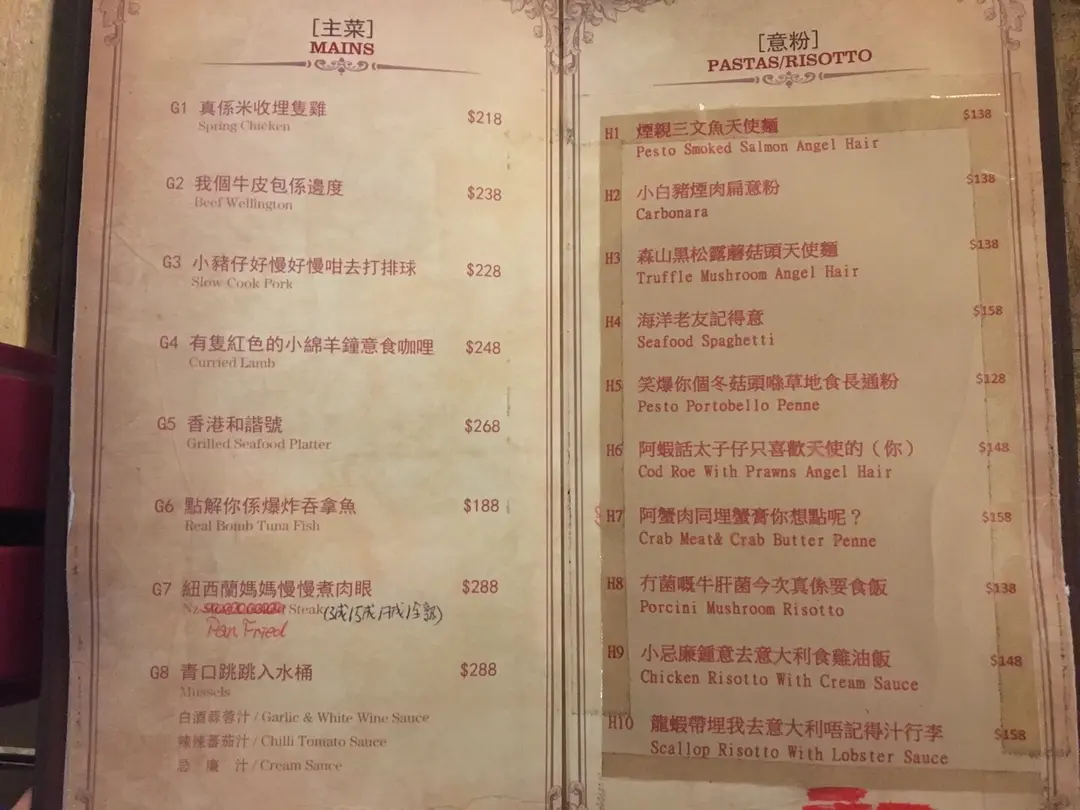 [主菜]
MAINS
G1 真係米收埋隻雞 $218
Spring Chicken
G2 我個牛皮包係邊度 $238
Beef Wellington
G3 小豬仔好慢好慢咁去打排球 $228
Slow Cook Pork
G4 有隻紅色的小綿羊鐘意食咖哩 $248
Curried Lamb
G5 香港和諧號 $268
Grilled Seafood Platter
G6 點解你係爆炸吞拿魚 $188
Real Bomb Tuna Fish
G7 紐西蘭媽媽慢慢煮肉眼 $288
Nz Steak
Pan Fried
G8 青口跳跳入水桶 $288
Mussels
白酒蒜蓉汁 / Garlic & White Wine Sauce
辣辣蕃茄汁 / Chilli Tomato Sauce
忌廉汁 / Cream Sauce
[意粉]
PASTAS/RISOTTO
H1 煙親三文魚天使麵 $138
Pesto Smoked Salmon Angel Hair
H2 小白豬煙肉扁意粉 $138
Carbonara
H3 森山黑松露蘑菇頭天使麵 $138
Truffle Mushroom Angel Hair
H4 海洋老友記得意 $158
Seafood Spaghetti
H5 笑爆你個冬菇頭喺草地食長通粉 $128
Pesto Portobello Penne
H6 阿蝦話太子仔只喜歡天使的（你） $148
Cod Roe With Prawns Angel Hair
H7 阿蟹肉同埋蟹膏你想點呢？ $158
Crab Meat& Crab Butter Penne
H8 冇菌嘅牛肝菌今次真係要食飯 $138
Porcini Mushroom Risotto
H9 小忌廉鍾意去意大利食雞油飯 $148
Chicken Risotto With Cream Sauce
H10 龍蝦帶埋我去意大利唔記得汁行李 $158
Scallop Risotto With Lobster Sauce